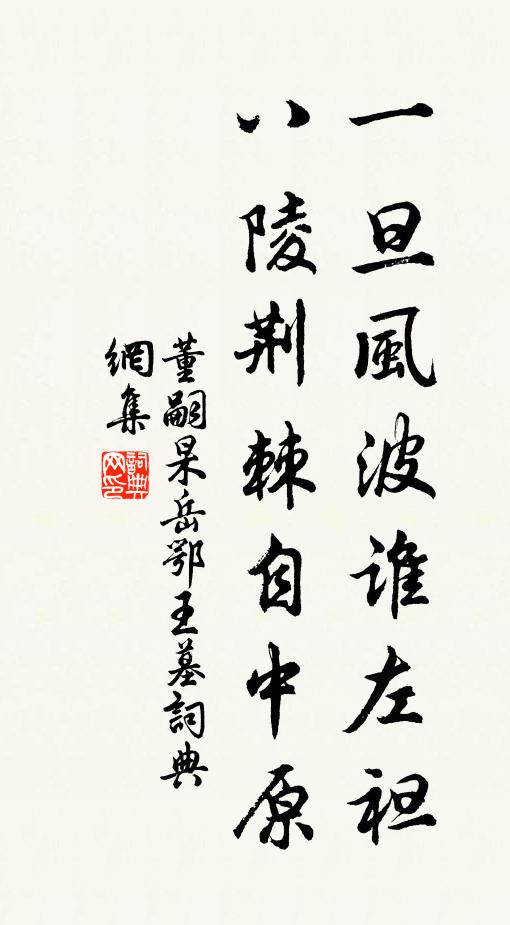 一旦風波誰左袒
八陵荆棘自中原
董嗣杲岳鄂王墓詞典
網集
詞典
网印